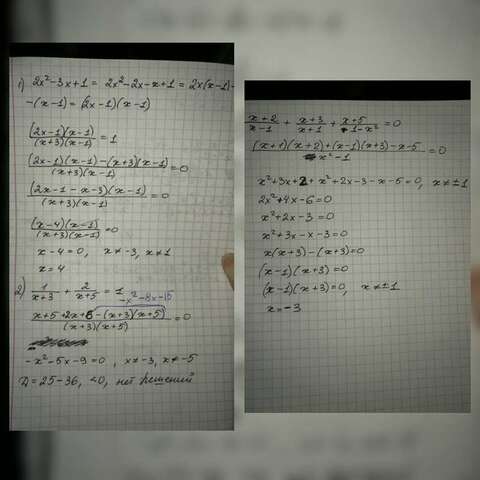 1) 2x²-3x+1 = 2x²-2x-x+1 = 2x(x-1)-
-(x-1) = (2x-1)(x-1)
(2x-1)(x-1)/(x+3)(x-1) = 1
(2x-1)(x-1)-(x+3)(x-1)/(x+3)(x-1) = 0
(2x-1-x-3)(x-1)/(x+3)(x-1) = 0
(x-4)(x-1)/(x+3)(x-1) = 0
x-4=0, x≠-3, x≠1
x=4
2) 1/x+3 + 2/x+5 = 1
-x²-8x-15
x+5+2x+6-(x+3)(x+5)/(x+3)(x+5) = 0
-x²-5x-9=0, x≠-3, x≠-5
D=25-36, <0, нет решений
x+2/x-1 + x+3/x+1 + x+5/1-x² = 0
(x+1)(x+2)+(x-1)(x+3)-x-5/x²-1 = 0
x²+3x+2+x²+2x-3-x-5=0, x≠±1
2x²+4x-6=0
x²+2x-3=0
x²+3x-x-3=0
x(x+3)-(x+3)=0
(x-1)(x+3)=0
(x-1)(x+3)=0, x≠±1
x=-3